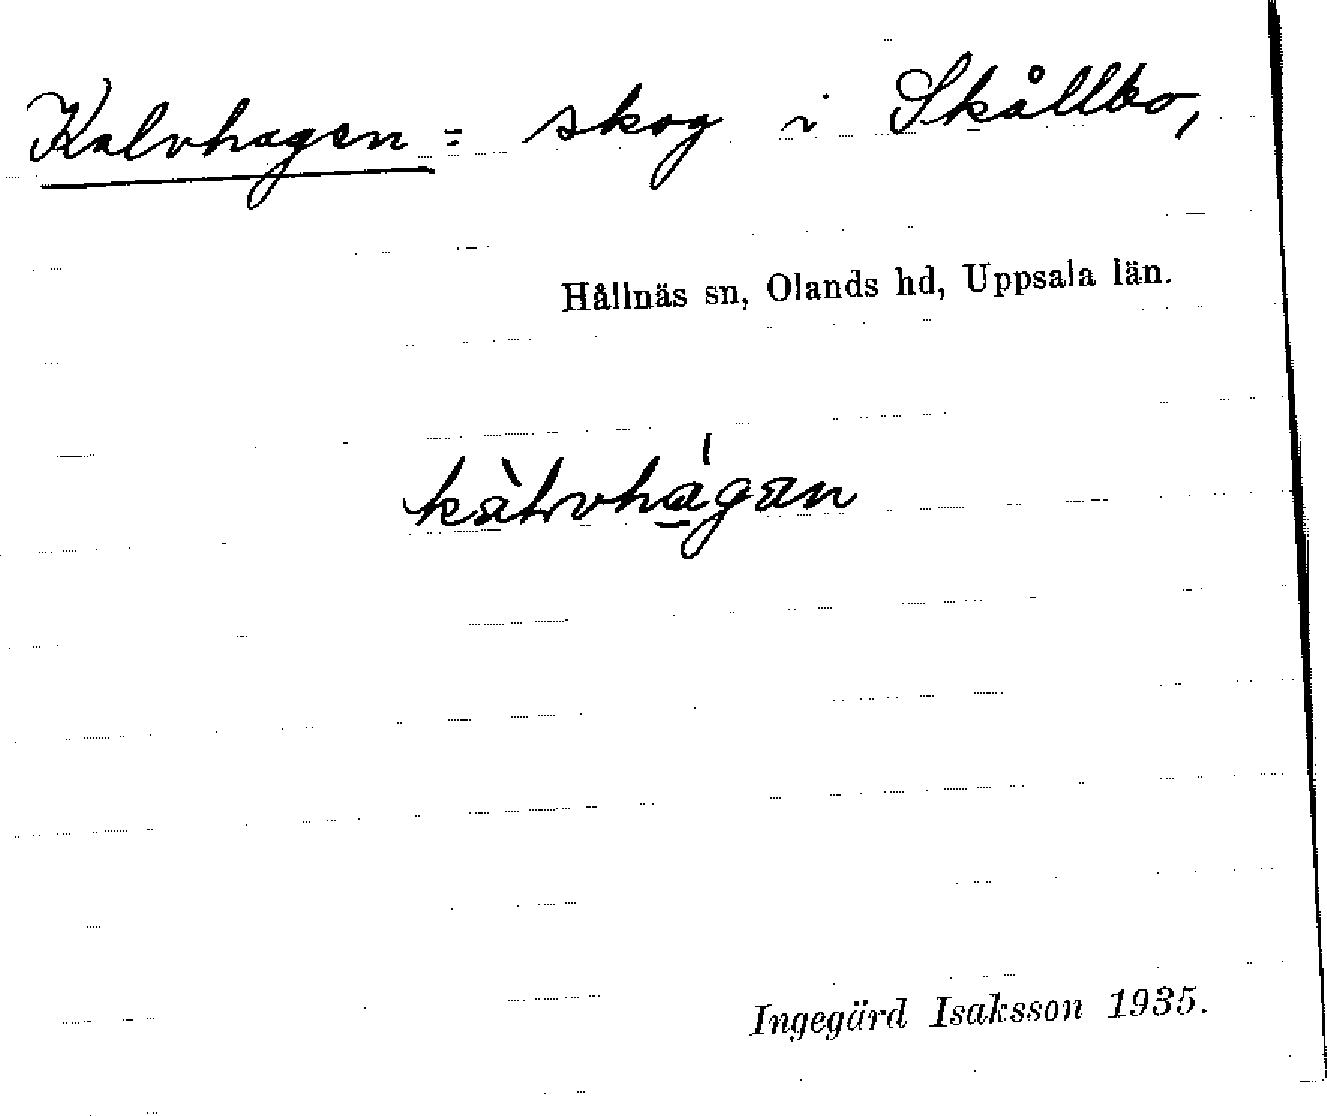 Kalvhagen = skog i Skållbo,
Hållnäs sn, Olands hd, Uppsala län.
Ingegärd Isaksson 1935.